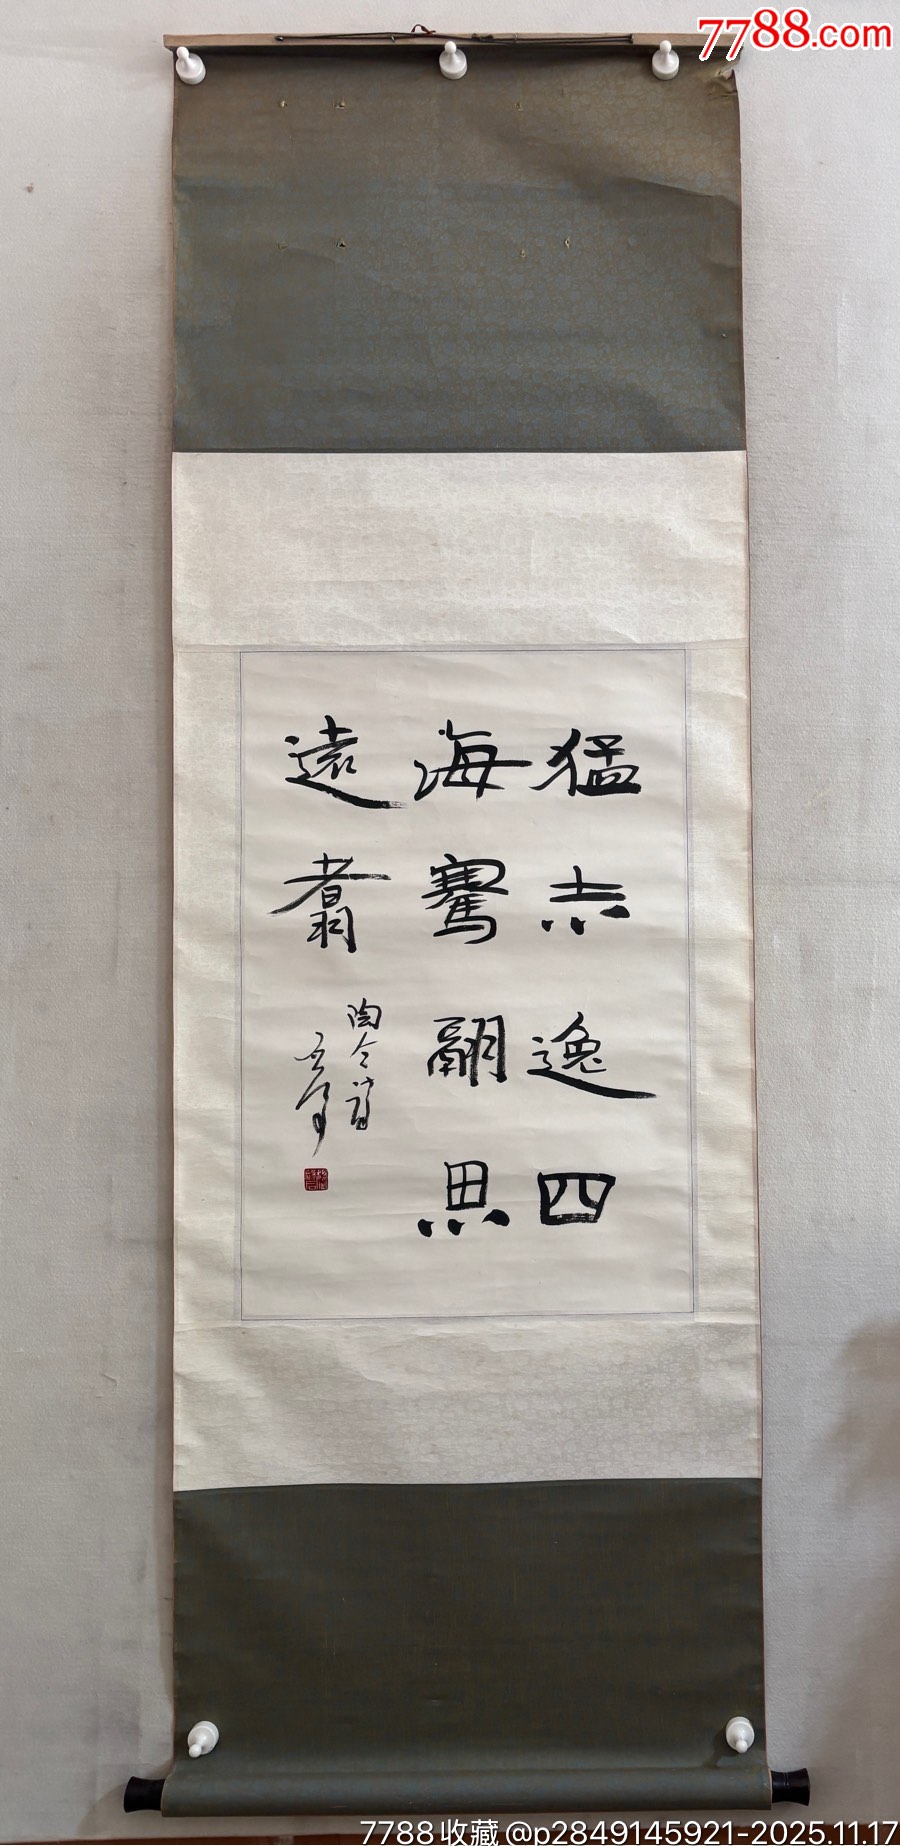 7788.com
猛志逸四
海騫翮思
遠翥
陶令詩
7788收藏@p2849145921-2025.11.17